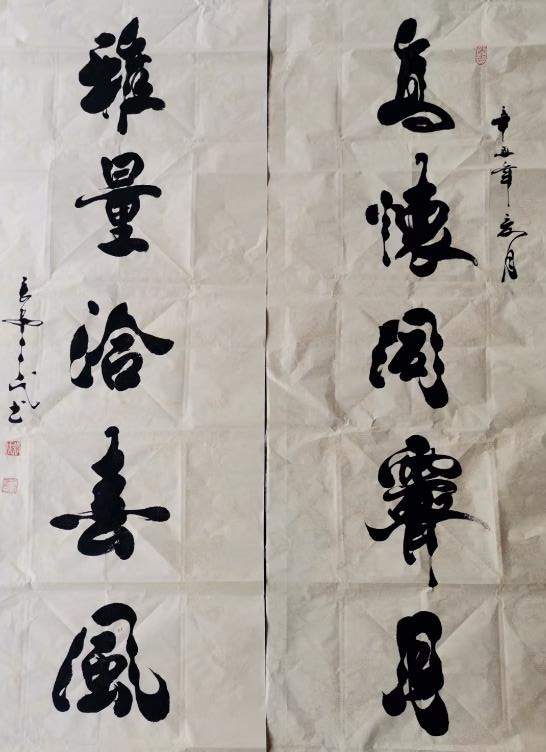 辛丑年夏月
高懷同霽月
雅量洽春風